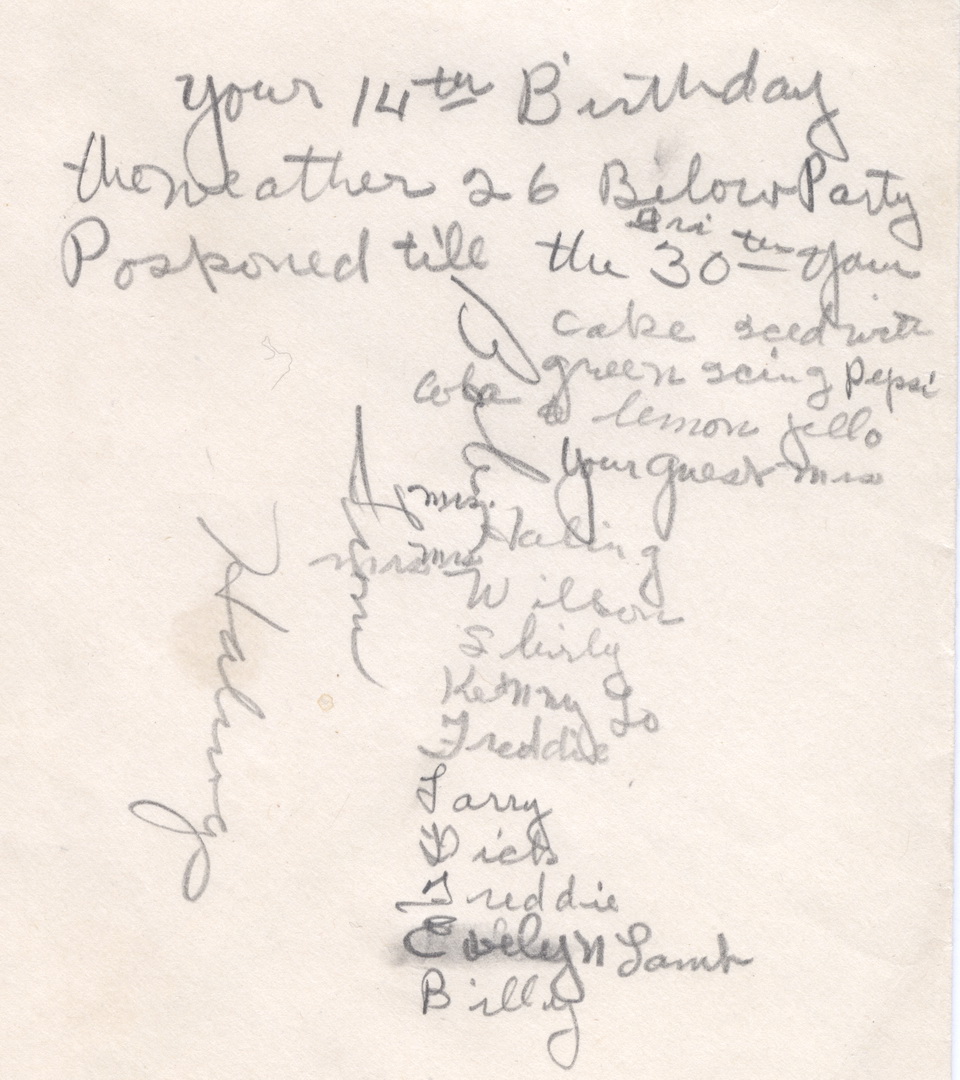 Your 14th Birthday
the weather 26 Below Party
Posponed till the 30th
Fri
Cake iced with
green icing Pepsi
Cola & lemon jello
Your guest mrs
mrs. Haling
mrs Wilson
Shirly
Kenny Lo
Freddie
Larry
Dick
Freddie
Evelyn Lamb
Billy
Ann
Haling